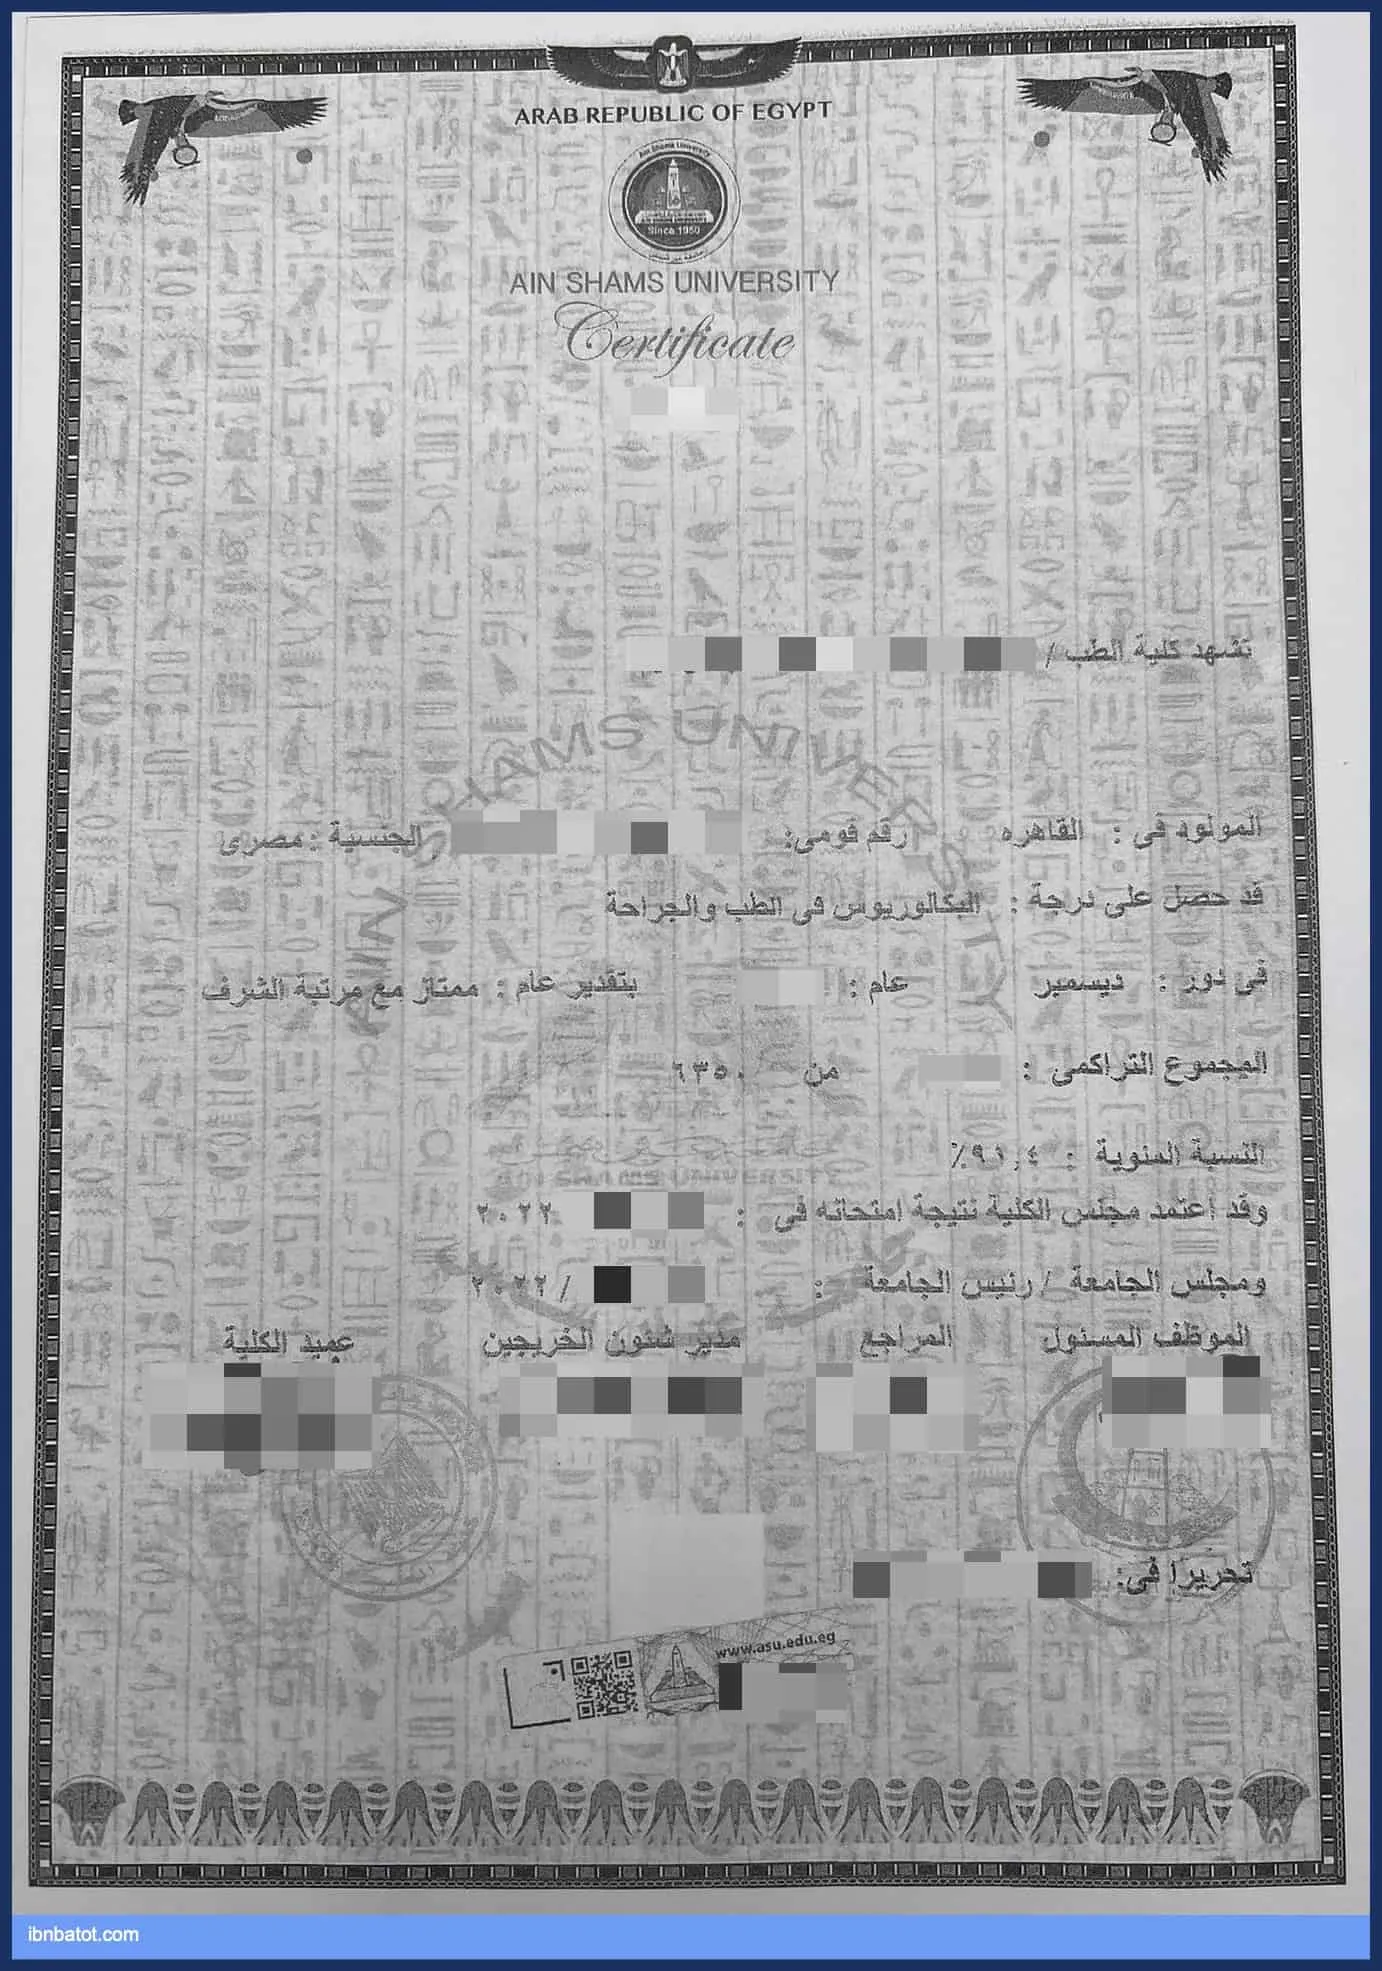 ARAB REPUBLIC OF EGYPT
Ain Shams University
Since 1950
AIN SHAMS UNIVERSITY
Certificate
تشهد كلية الطب /
AIN SHAMS UNIVERSITY
المولود فى : القاهره رقم قومى: الجنسية : مصرى
قد حصل على درجة : البكالوريوس فى الطب والجراحة
فى دور : ديسمبر عام : بتقدير عام : ممتاز مع مرتبة الشرف
المجموع التراكمى : من ٦٣٥٠
النسبة المئوية : ٩١,٤٪
AIN SHAMS UNIVERSITY
وقد اعتمد مجلس الكلية نتيجة امتحانه فى : ٢٠٢٢
ومجلس الجامعة / رئيس الجامعة : / ٢٠٢٢
الموظف المسئول المراجع مدير شئون الخريجين عميد الكلية
تحريرا فى:
www.asu.edu.eg
ibnbatot.com